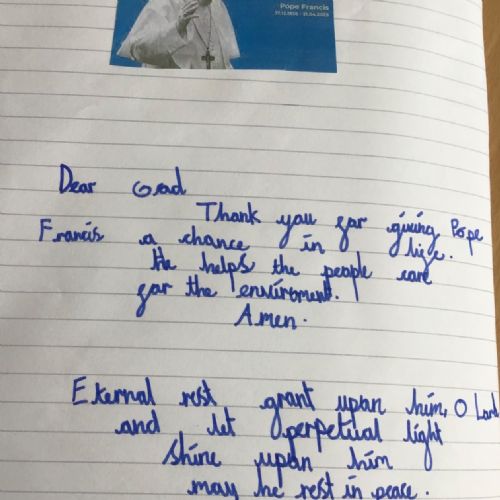 Pope Francis
17.12.1936 - 21.04.2025
Dear God
Thank you for giving Pope
Francis a chance in life.
He helps the people care
for the enviroment.
Amen.
Eternal rest grant upon him, O Lord
and let perpetual light
shine upon him
may he rest in peace.